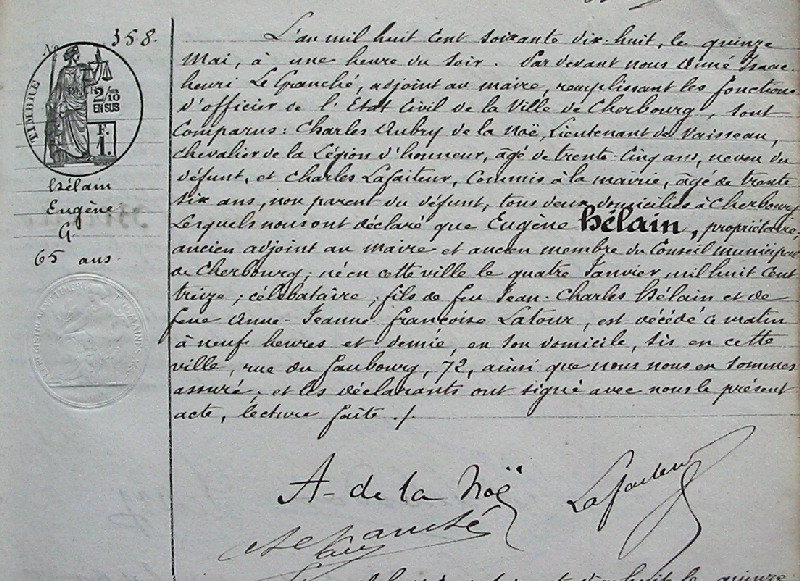 N° 358.
TIMBRE
2/10
EN SUS
F.
1
Hélain
Eugène
G
65 ans.
L'an mil huit cent soixante dix-huit, le quinze
Mai, à une heure du soir. Par devant nous Aimé Isaac
henri Le Ganché, adjoint au maire, remplissant les fonctions
d'officier de l'Etat Civil de la Ville de Cherbourg, sont
Comparus: Charles Aubry de la Noë, Lieutenant de Vaisseau,
chevalier de la Légion d'honneur, âgé de trente cinq ans, neveu du
défunt, et Charles Lafaiteur, Commis à la mairie, âgé de trente
six ans, non parent du défunt, tous deux domiciliés à Cherbourg
Lesquels nous ont déclaré que Eugène Hélain, propriétaire,
ancien adjoint au maire et ancien membre du Conseil municipal
de Cherbourg, né en cette ville le quatre Janvier, mil huit cent
treize, célibataire, fils de feu Jean-Charles Hélain et de
feue Anne-Jeanne françoise Latour, est décédé ce matin
à neuf heures et demie, en son domicile, sis en cette
ville, rue du faubourg, 72, ainsi que nous nous en sommes
assuré, et les déclarants ont signé avec nous le présent
acte, lecture faite ./.
A-de la Noë
Lafaiteur
le quinze